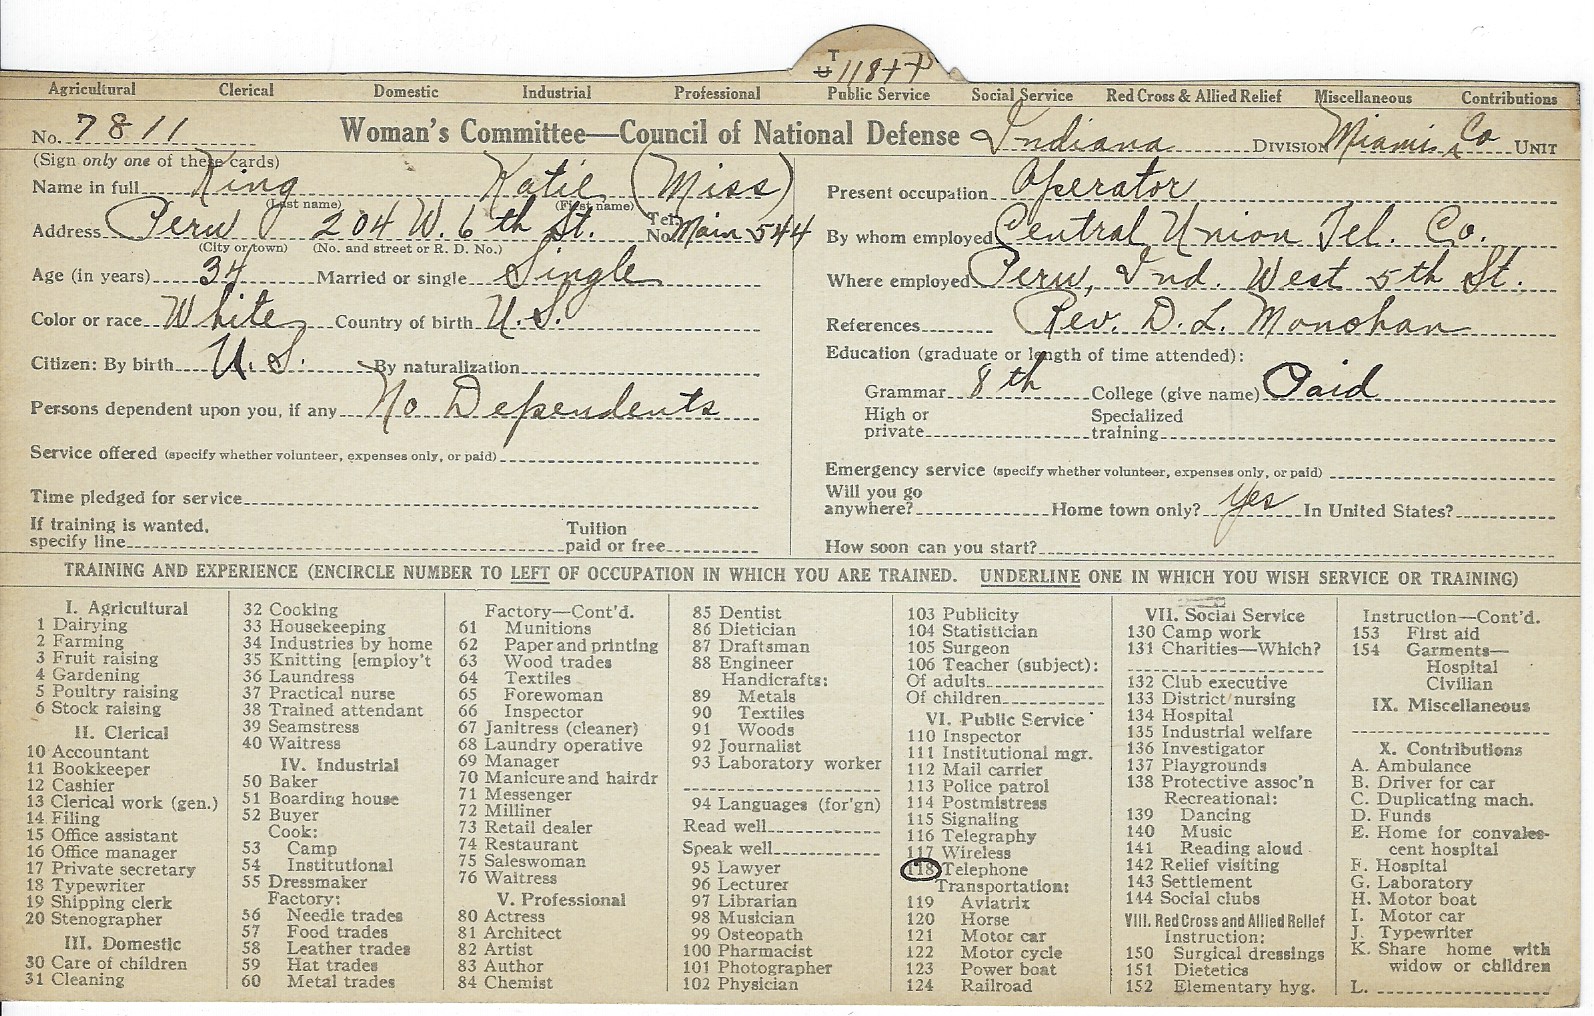 T
U 118 + P
Agricultural Clerical Domestic Industrial Professional Public Service Social Service Red Cross & Allied Relief Miscellaneous Contributions
No. 7811 Woman's Committee—Council of National Defense Indiana DIVISION Miami Co UNIT
(Sign only one of these cards)
Name in full King Katie (Miss)
(Last name) (First name)
Address Peru 204 W. 6th St. Tel. No. Main 544
(City or town) (No. and street or R. D. No.)
Age (in years) 34 Married or single Single
Color or race White Country of birth U.S.
Citizen: By birth U.S. By naturalization
Persons dependent upon you, if any No Dependents
Service offered (specify whether volunteer, expenses only, or paid)
Time pledged for service
If training is wanted, specify line Tuition paid or free
Present occupation Operator
By whom employed Central Union Tel. Co.
Where employed Peru, Ind. West 5th St.
References Rev. D. L. Monohan
Education (graduate or length of time attended):
Grammar 8th College (give name) Paid
High or private Specialized training
Emergency service (specify whether volunteer, expenses only, or paid)
Will you go anywhere? Home town only? Yes In United States?
How soon can you start?
TRAINING AND EXPERIENCE (ENCIRCLE NUMBER TO LEFT OF OCCUPATION IN WHICH YOU ARE TRAINED. UNDERLINE ONE IN WHICH YOU WISH SERVICE OR TRAINING)
I. Agricultural
1 Dairying
2 Farming
3 Fruit raising
4 Gardening
5 Poultry raising
6 Stock raising
II. Clerical
10 Accountant
11 Bookkeeper
12 Cashier
13 Clerical work (gen.)
14 Filing
15 Office assistant
16 Office manager
17 Private secretary
18 Typewriter
19 Shipping clerk
20 Stenographer
III. Domestic
30 Care of children
31 Cleaning
32 Cooking
33 Housekeeping
34 Industries by home
35 Knitting [employ't
36 Laundress
37 Practical nurse
38 Trained attendant
39 Seamstress
40 Waitress
IV. Industrial
50 Baker
51 Boarding house
52 Buyer
Cook:
53 Camp
54 Institutional
55 Dressmaker
Factory:
56 Needle trades
57 Food trades
58 Leather trades
59 Hat trades
60 Metal trades
Factory—Cont'd.
61 Munitions
62 Paper and printing
63 Wood trades
64 Textiles
65 Forewoman
66 Inspector
67 Janitress (cleaner)
68 Laundry operative
69 Manager
70 Manicure and hairdr
71 Messenger
72 Milliner
73 Retail dealer
74 Restaurant
75 Saleswoman
76 Waitress
V. Professional
80 Actress
81 Architect
82 Artist
83 Author
84 Chemist
85 Dentist
86 Dietician
87 Draftsman
88 Engineer
Handicrafts:
89 Metals
90 Textiles
91 Woods
92 Journalist
93 Laboratory worker
94 Languages (for'gn)
Read well
Speak well
95 Lawyer
96 Lecturer
97 Librarian
98 Musician
99 Osteopath
100 Pharmacist
101 Photographer
102 Physician
103 Publicity
104 Statistician
105 Surgeon
106 Teacher (subject):
Of adults
Of children
VI. Public Service
110 Inspector
111 Institutional mgr.
112 Mail carrier
113 Police patrol
114 Postmistress
115 Signaling
116 Telegraphy
117 Wireless
118 Telephone
Transportation:
119 Aviatrix
120 Horse
121 Motor car
122 Motor cycle
123 Power boat
124 Railroad
VII. Social Service
130 Camp work
131 Charities—Which?
132 Club executive
133 District nursing
134 Hospital
135 Industrial welfare
136 Investigator
137 Playgrounds
138 Protective assoc'n
Recreational:
139 Dancing
140 Music
141 Reading aloud
142 Relief visiting
143 Settlement
144 Social clubs
VIII. Red Cross and Allied Relief
Instruction:
150 Surgical dressings
151 Dietetics
152 Elementary hyg.
Instruction—Cont'd.
153 First aid
154 Garments—
Hospital
Civilian
IX. Miscellaneous
X. Contributions
A. Ambulance
B. Driver for car
C. Duplicating mach.
D. Funds
E. Home for convales-
cent hospital
F. Hospital
G. Laboratory
H. Motor boat
I. Motor car
J. Typewriter
K. Share home with
widow or children
L.